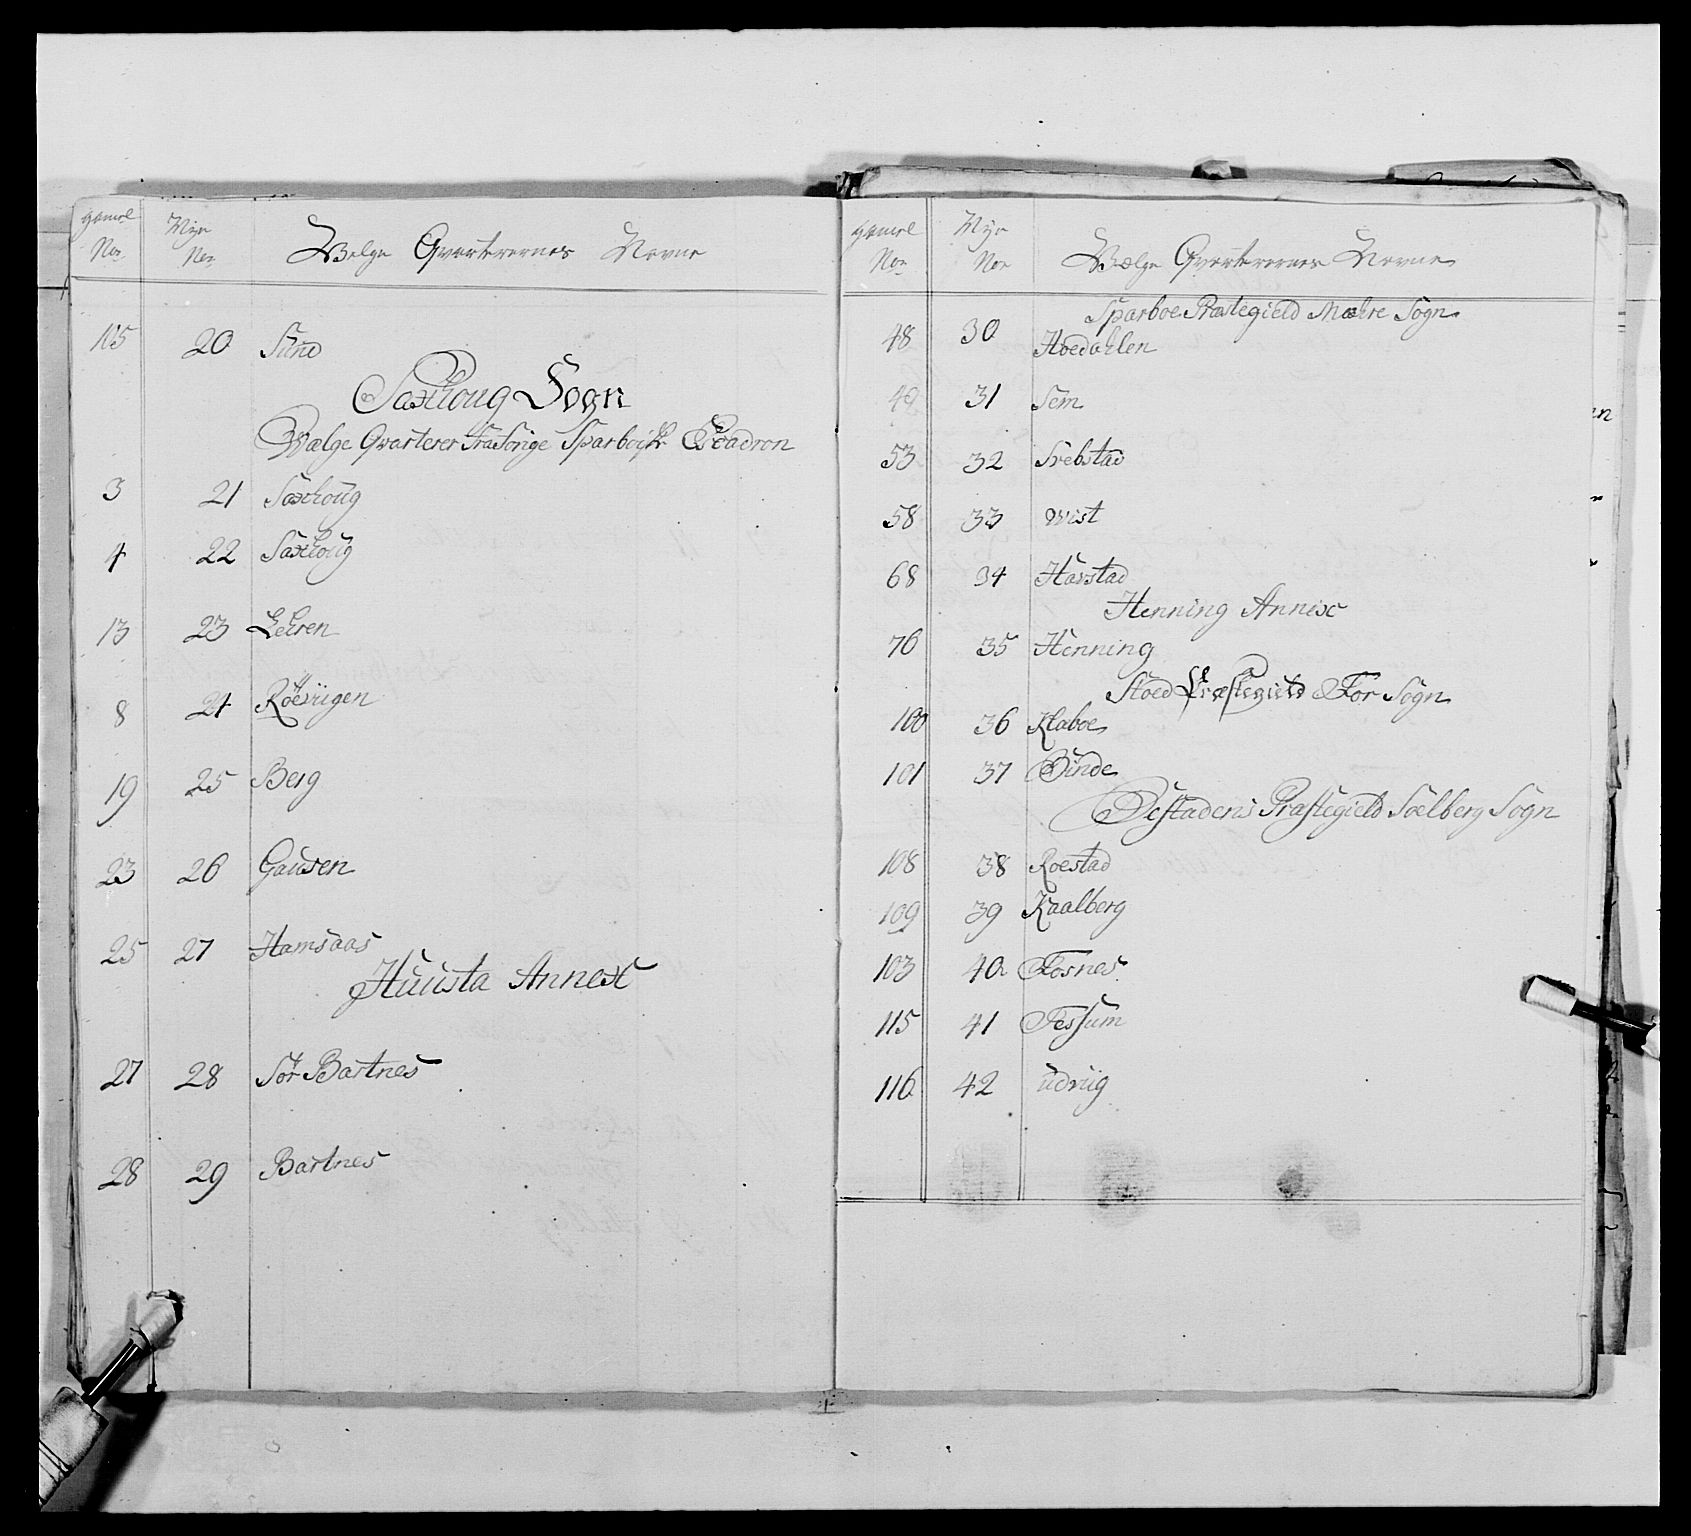 Gamel Nor Nye Nor Welge Qvarterernes Navne
105 20 Sund
Saxhoug Sogn
Wælge Qvarterer fra Sorige Sparboiske Esqadron
3 21 Saxhoug
4 22 Saxhoug
13 23 Lehren
8 24 Röesugen
19 25 Berg
23 26 Gausen
25 27 Hamsaas
Huusta Annex
27 28 Sör Bartnes
28 29 Bartnes
Gamel Nor Nye Nor Wælge Qvarterernes Navne
Sparboe Præstegield Mæhre Sogn
48 30 Hoedahlen
49 31 Sem
53 32 Srebstad
58 33 Wist
68 34 Harstad
Henning Annex
76 35 Henning
Stoed Præstegield For Sogn
100 36 Klaboe
101 37 Binde
Öestadens Præstegield Soelberg Sogn
108 38 Roestad
109 39 Kaalberg
103 40 Fosnes
115 41 Fessum
116 42 udviig